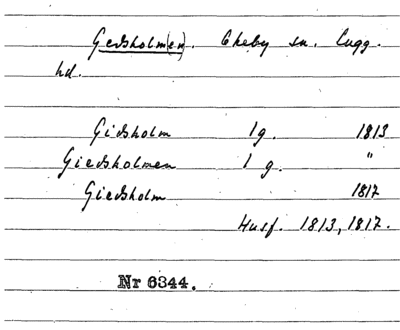 Gedsholm(en). Ekeby sn. Lugg.
hd.
Gidsholm 1 g. 1813
Giedsholmen 1 g. "
Giedsholm 1817
Husf. 1813, 1817.
Nr 6344.